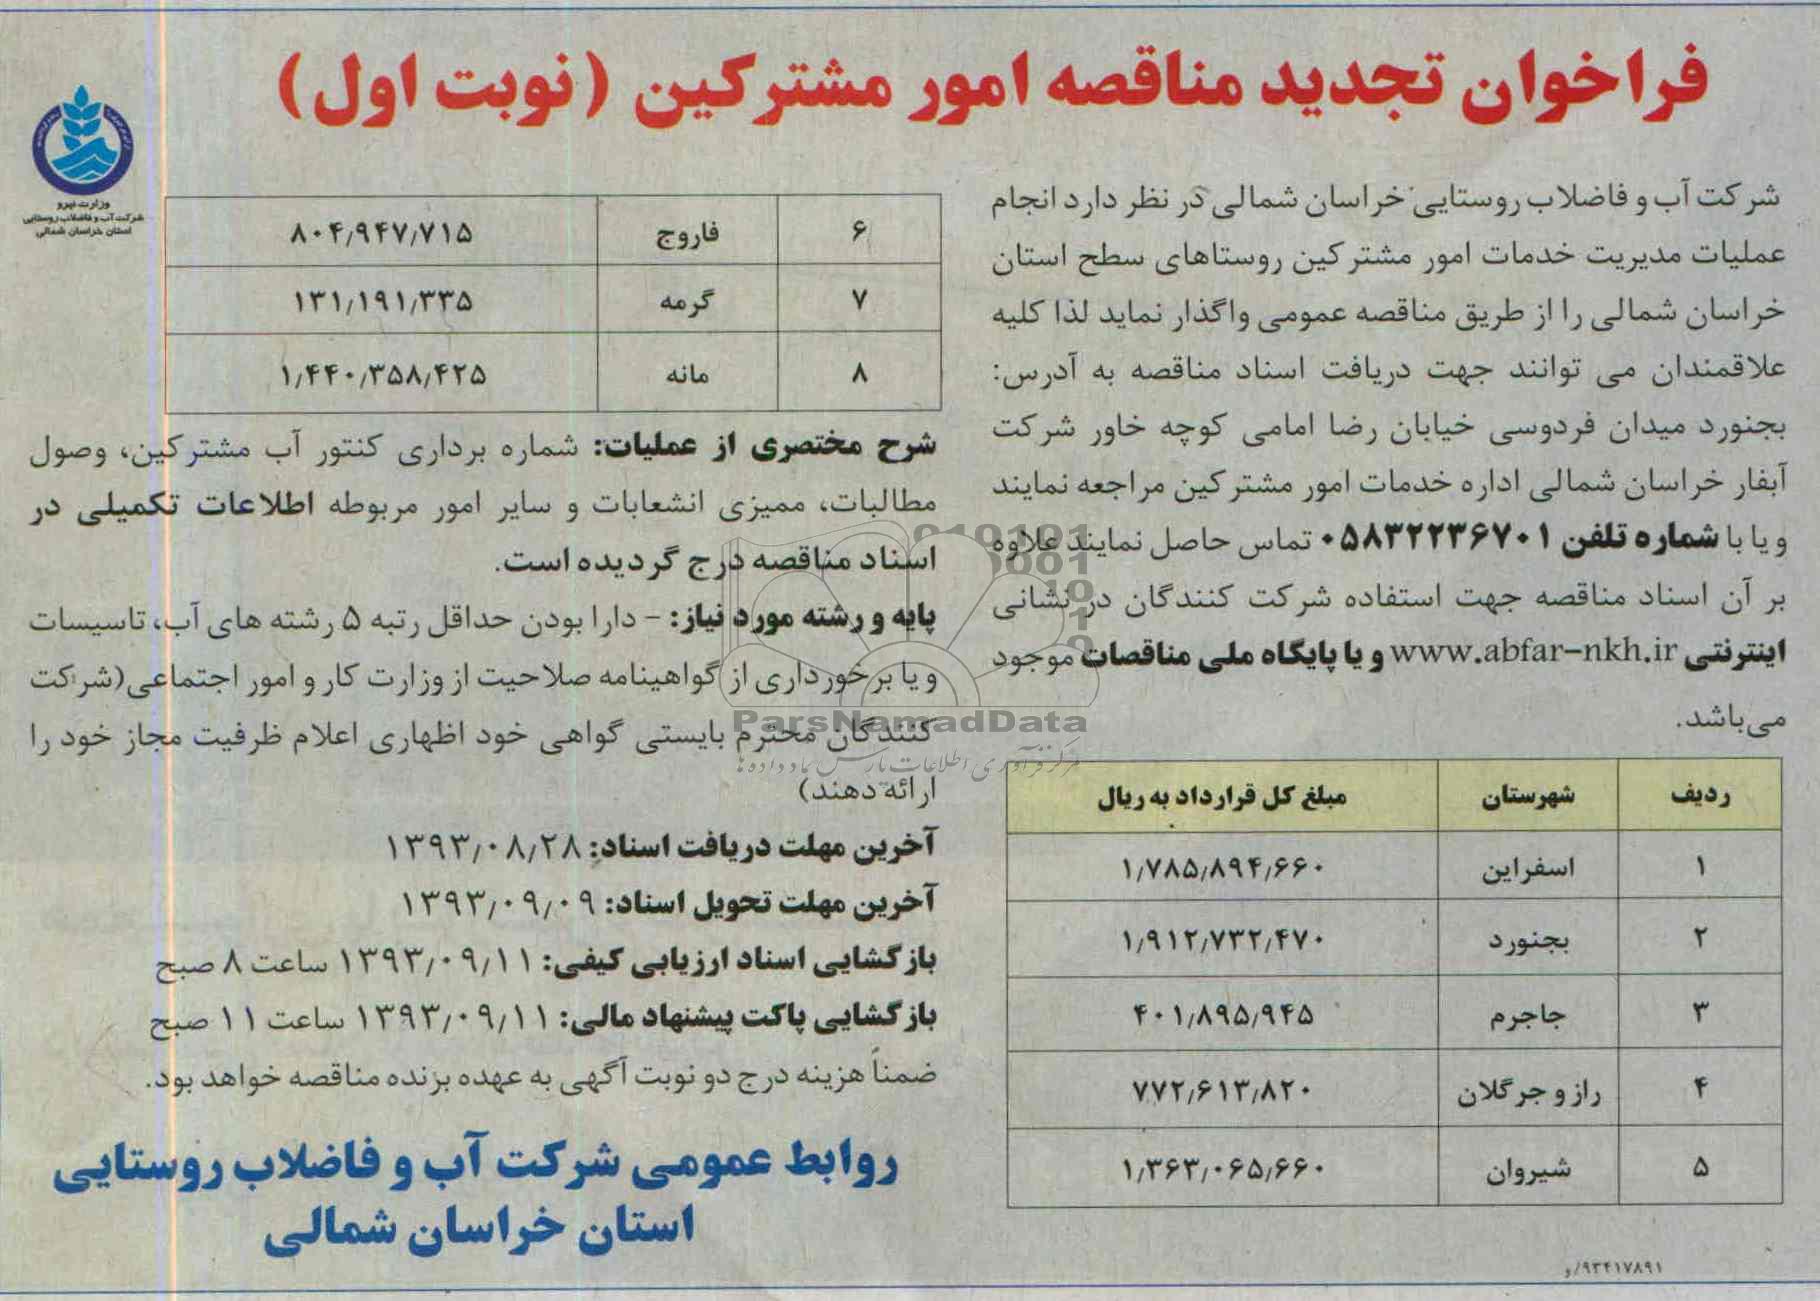 فراخوان تجدید مناقصه امور مشترکین (نوبت اول)
وزارت نیرو
شرکت آب و فاضلاب روستایی
استان خراسان شمالی
شرکت آب و فاضلاب روستایی خراسان شمالی در نظر دارد انجام
عملیات مدیریت خدمات امور مشترکین روستاهای سطح استان
خراسان شمالی را از طریق مناقصه عمومی واگذار نماید لذا کلیه
علاقمندان می توانند جهت دریافت اسناد مناقصه به آدرس:
بجنورد میدان فردوسی خیابان رضا امامی کوچه خاور شرکت
آبفار خراسان شمالی اداره خدمات امور مشترکین مراجعه نمایند
و یا با شماره تلفن ۰۵۸۳۲۲۳۶۷۰۱ تماس حاصل نمایند علاوه
بر آن اسناد مناقصه جهت استفاده شرکت کنندگان در نشانی
اینترنتی www.abfar-nkh.ir و یا پایگاه ملی مناقصات موجود
می‌باشد.
ردیف شهرستان مبلغ کل قرارداد به ریال
۱ اسفراین ۱٫۷۸۵٫۸۹۴٫۶۶۰
۲ بجنورد ۱٫۹۱۲٫۷۳۲٫۴۷۰
۳ جاجرم ۴۰۱٫۸۹۵٫۹۴۵
۴ راز و جرگلان ۷۷۲٫۶۱۳٫۸۲۰
۵ شیروان ۱٫۳۶۳٫۰۶۵٫۶۶۰
۶ فاروج ۸۰۴٫۹۴۷٫۷۱۵
۷ گرمه ۱۳۱٫۱۹۱٫۳۳۵
۸ مانه ۱٫۴۴۰٫۳۵۸٫۴۲۵
شرح مختصری از عملیات: شماره برداری کنتور آب مشترکین، وصول
مطالبات، ممیزی انشعابات و سایر امور مربوطه اطلاعات تکمیلی در
اسناد مناقصه درج گردیده است.
پایه و رشته مورد نیاز: - دارا بودن حداقل رتبه ۵ رشته های آب، تاسیسات
و یا برخورداری از گواهینامه صلاحیت از وزارت کار و امور اجتماعی(شرکت
کنندگان محترم بایستی گواهی خود اظهاری اعلام ظرفیت مجاز خود را
ارائه دهند)
آخرین مهلت دریافت اسناد: ۱۳۹۳٫۰۸٫۲۸
آخرین مهلت تحویل اسناد: ۱۳۹۳٫۰۹٫۰۹
بازگشایی اسناد ارزیابی کیفی: ۱۳۹۳٫۰۹٫۱۱ ساعت ۸ صبح
بازگشایی پاکت پیشنهاد مالی: ۱۳۹۳٫۰۹٫۱۱ ساعت ۱۱ صبح
ضمناً هزینه درج دو نوبت آگهی به عهده برنده مناقصه خواهد بود.
روابط عمومی شرکت آب و فاضلاب روستایی
استان خراسان شمالی
۹۳۴۱۷۸۹۱/و
ParsNamadData
مرکز فرآوری اطلاعات پارس نماد داده ها